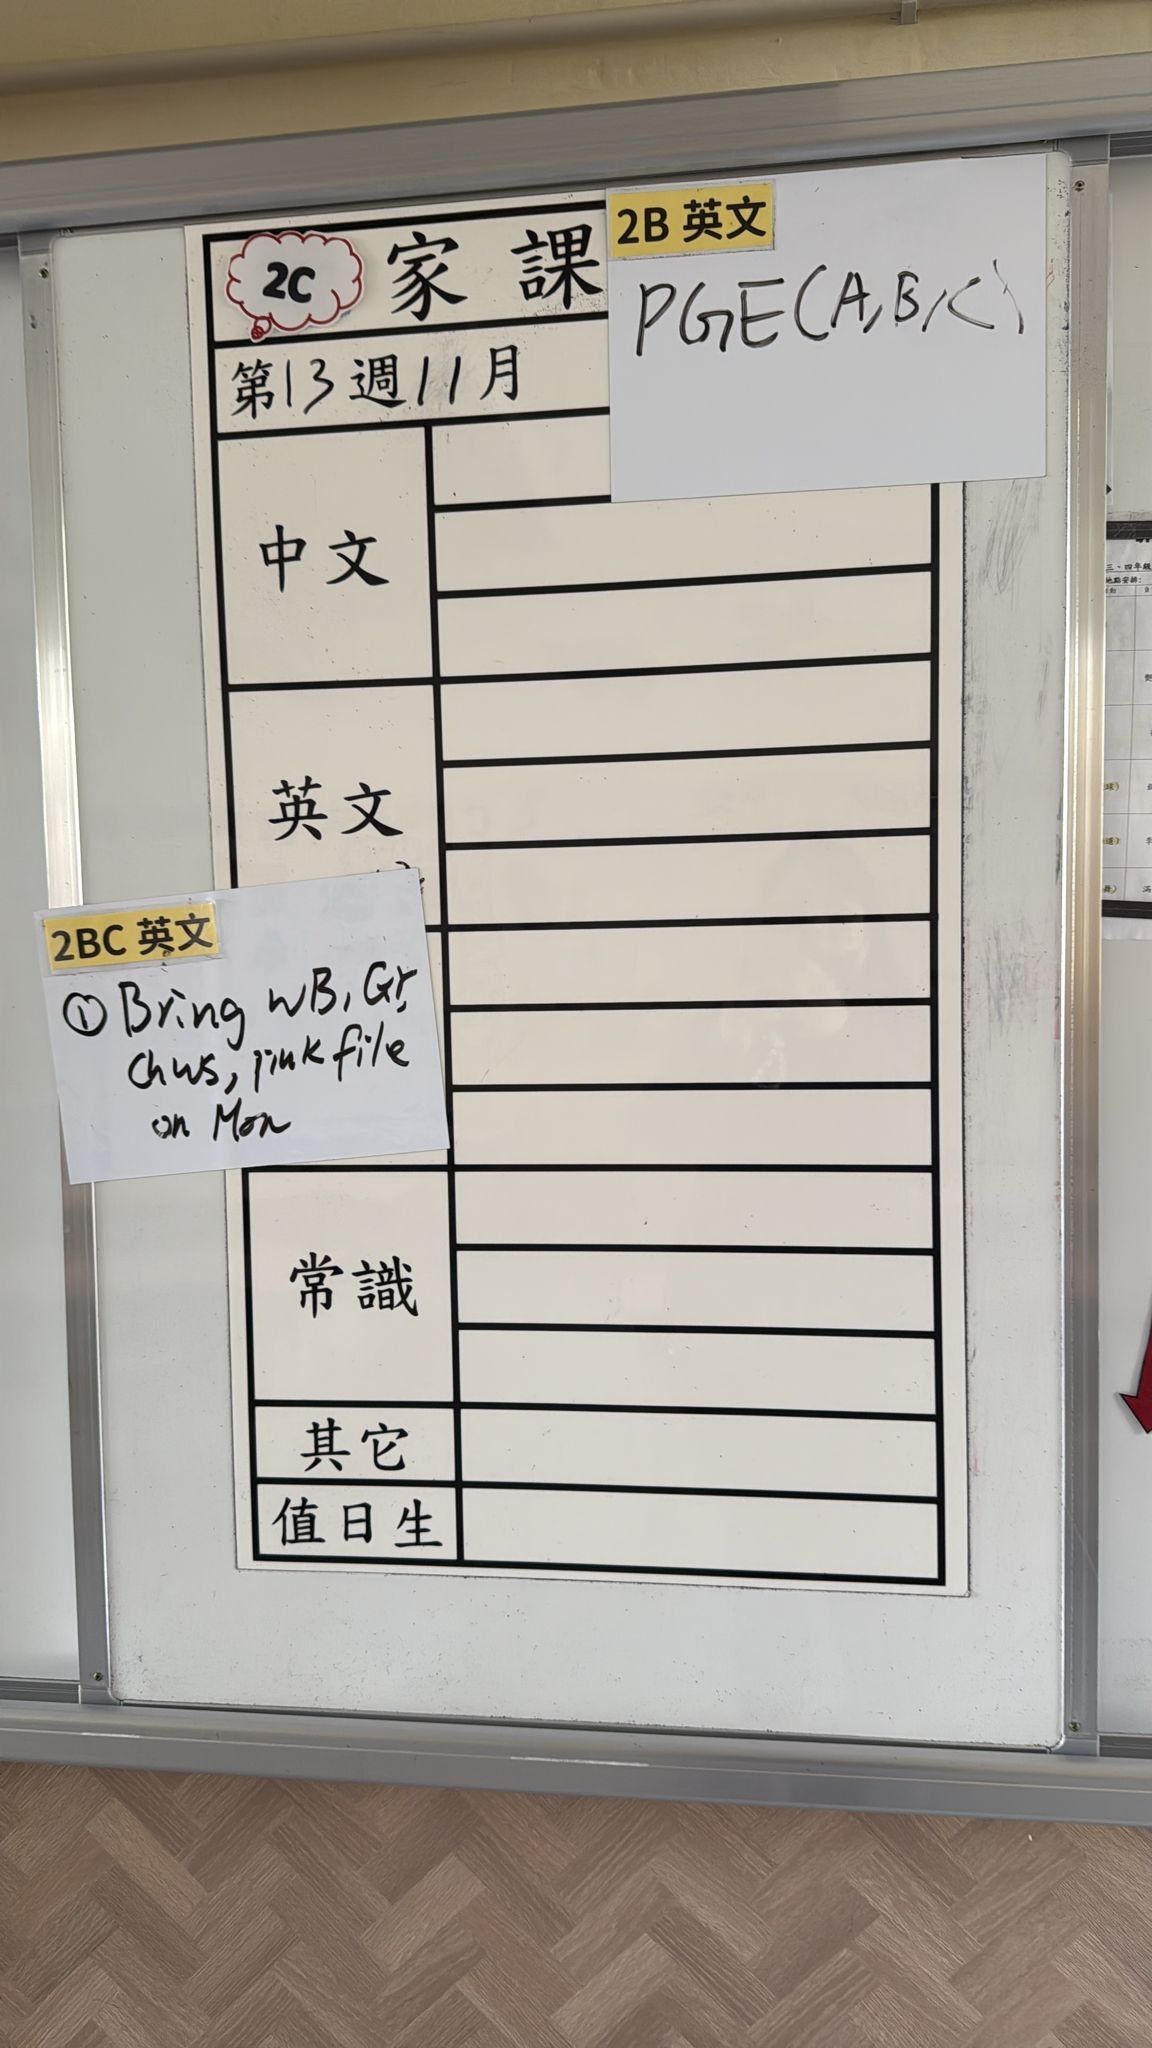 2C 家課
2B 英文
PGE(A,B,C)
第13週11月
中文
英文
2BC 英文
① Bring WB, Gr,
chws, pink file
on Mon
常識
其它
值日生
三、四年級
地點安排: